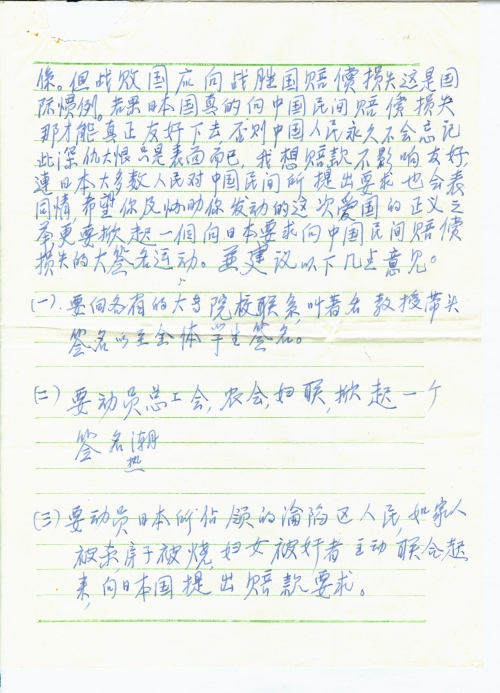 係。但战败国应向战胜国赔偿损失这是国
际惯例。若果日本国真的向中国民间赔偿损失
那才能真正友好下去否则中国人民永久不会忘记
此深仇大恨只是表面而已，我想赔款不影响友好，
連日本大多数人民对中国民间所提出要求也会表
同情，希望你及协助你发动的这次爱国的正义之
举更要掀起一個向日本要求向中国民间赔偿
损失的大签名运动。並建议以下几点意见。
(一)．要向各省的大专院校联系，叫著名教授带头
签名以至全体学生签名。
(二)要动员总工会，农会，妇联，掀起一个
签名潮
热
(三)要动员日本所佔领的淪陷区人民，如家人
被杀，房子被烧，妇女被奸者主动联合起
来，向日本国提出赔款要求。